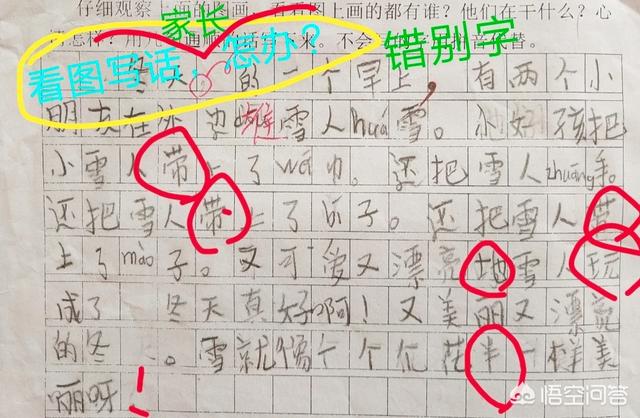 仔细观察上面的图画,看看图上画的都有谁?他们在干什么?心
情怎样?用几句通顺的话写下来。不会写的字用拼音代替。
家长
错别字
看图写话,怎办?
冬天的一个早上,有两个小
朋友在外边堆雪人huá雪。小好孩把
小雪人带上了wéi巾。还把雪人zhuāng手。
还把雪人带上了爪子。还把雪人
上了mào子。又可爱又漂亮地雪人玩
成了 冬天真好啊!又美丽又漂亮
的冬 。雪就像个个花 一样美
丽呀!
悟空问答